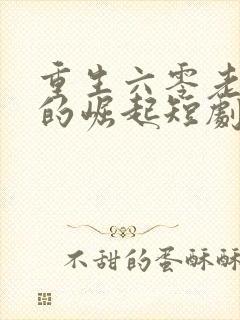 重生六零老
的崛起短劇
不甜的蛋酥酥